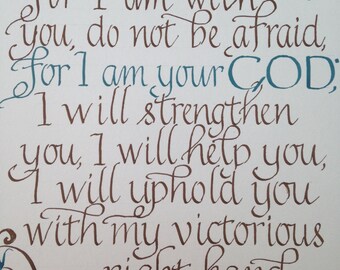 for I am with
you, do not be afraid,
for I am your GOD;
I will strengthen
you, I will help you,
I will uphold you
with my victorious
right hand